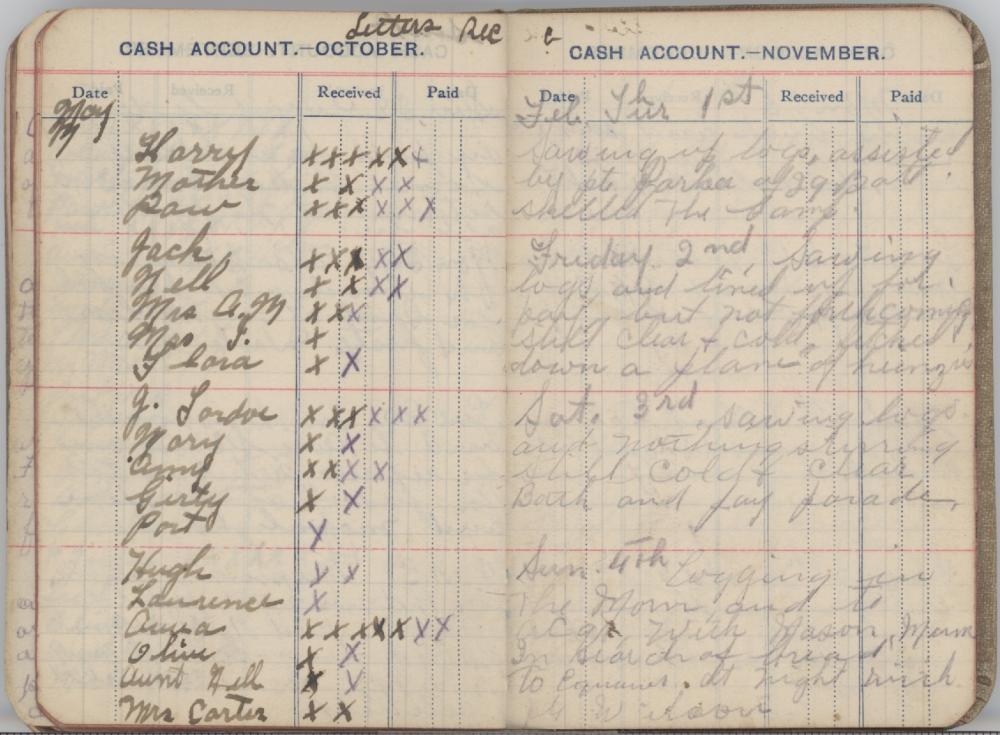 Letters Rec
CASH ACCOUNT.—OCTOBER.
Date Received Paid
May
Harry x x x x x x
Mother x x x x
Paw x x x x x x
Jack x x x x x
Nell x x x x
Mrs A. M x x x
Mrs J. x
Flora x x
J. Lordoe x x x x x x
Mary x x
Amy x x x x
Gerty x x
Port x
Hugh x x
Laurence x
Anna x x x x x x x
Olive x x
Aunt Nell x x
Mrs Carter x x
CASH ACCOUNT.—NOVEMBER.
Date Received Paid
Feb. Thur 1st
Sawing up logs, assisted
by pt. of 29 Batt
shelled The Camp.
Friday 2nd, Sawing
logs and lined up for
pay, but not forthcoming
still clear + cold,
down a plane of
Sat. 3rd, sawing logs
and nothing stirring
still cold + clear
Bath and pay parade,
Sun. 4th Logging in
The Morn and to
With Mason, Munn
In search of bread
To at night with
Wilson